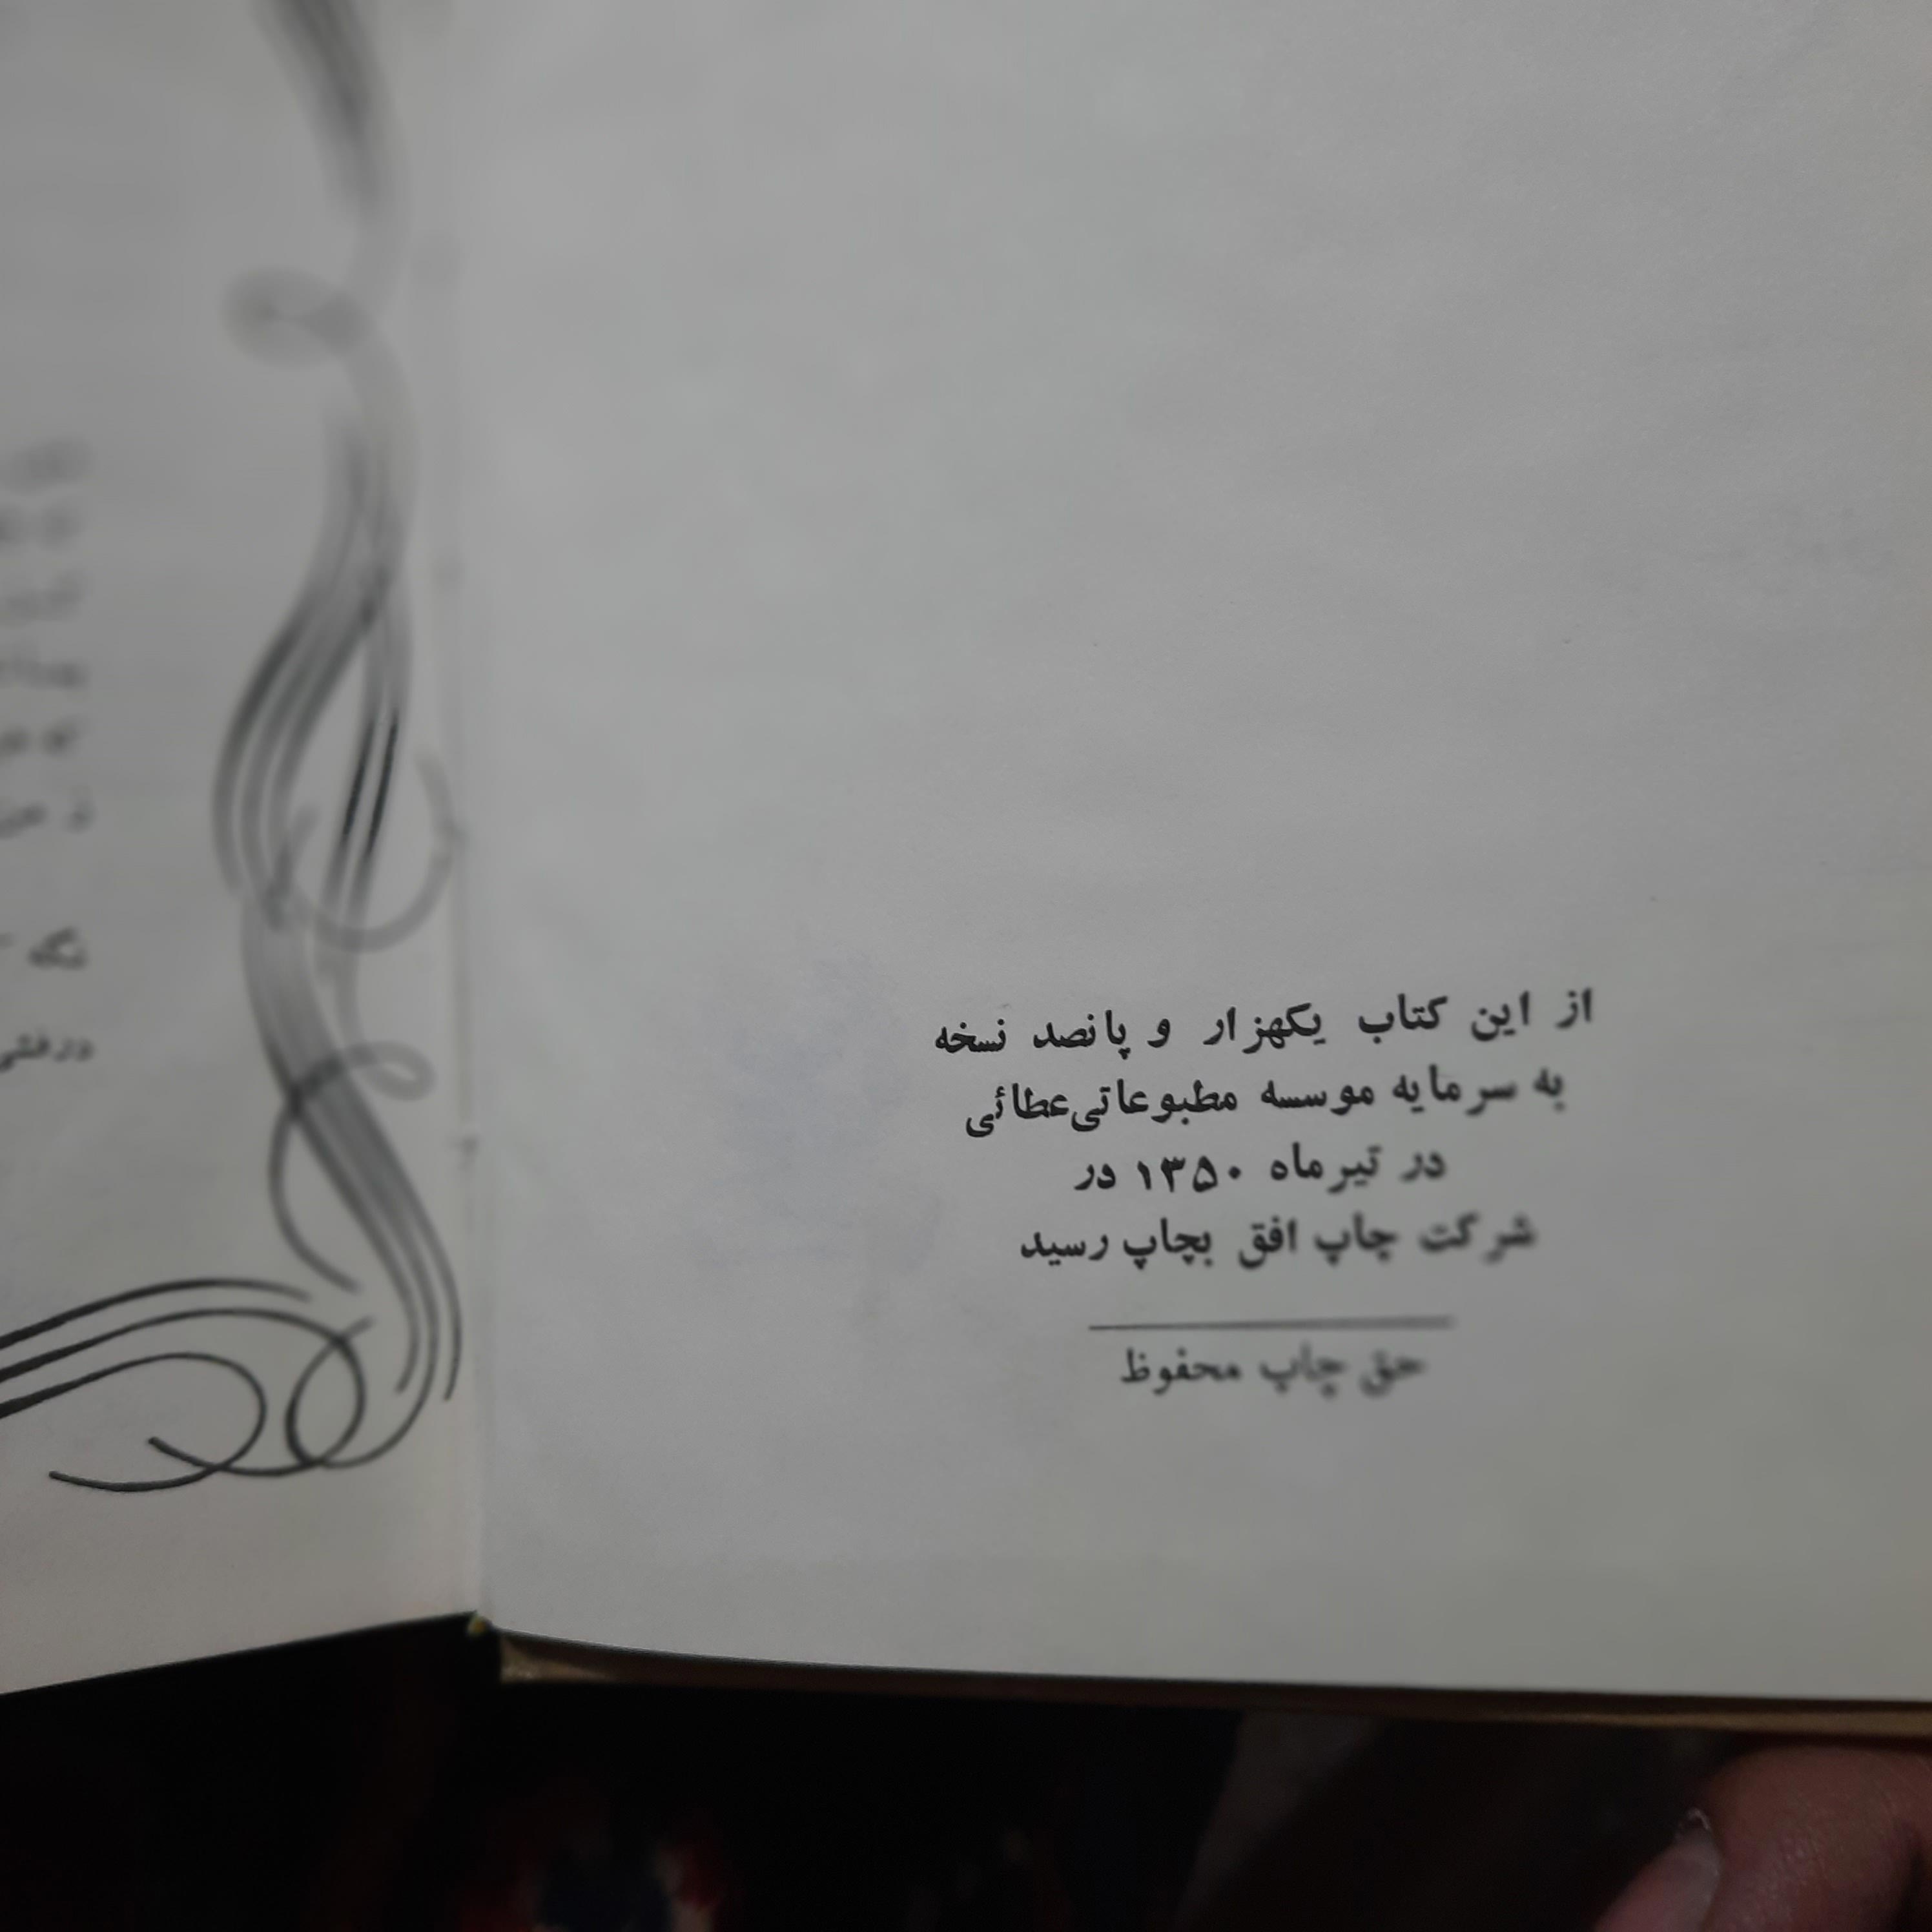 از این کتاب یکهزار و پانصد نسخه
به سرمایه موسسه مطبوعاتی عطائی
در تیرماه ۱۳۵۰ در
شرکت چاپ افق بچاپ رسید
حق چاپ محفوظ
نگه
درفشی